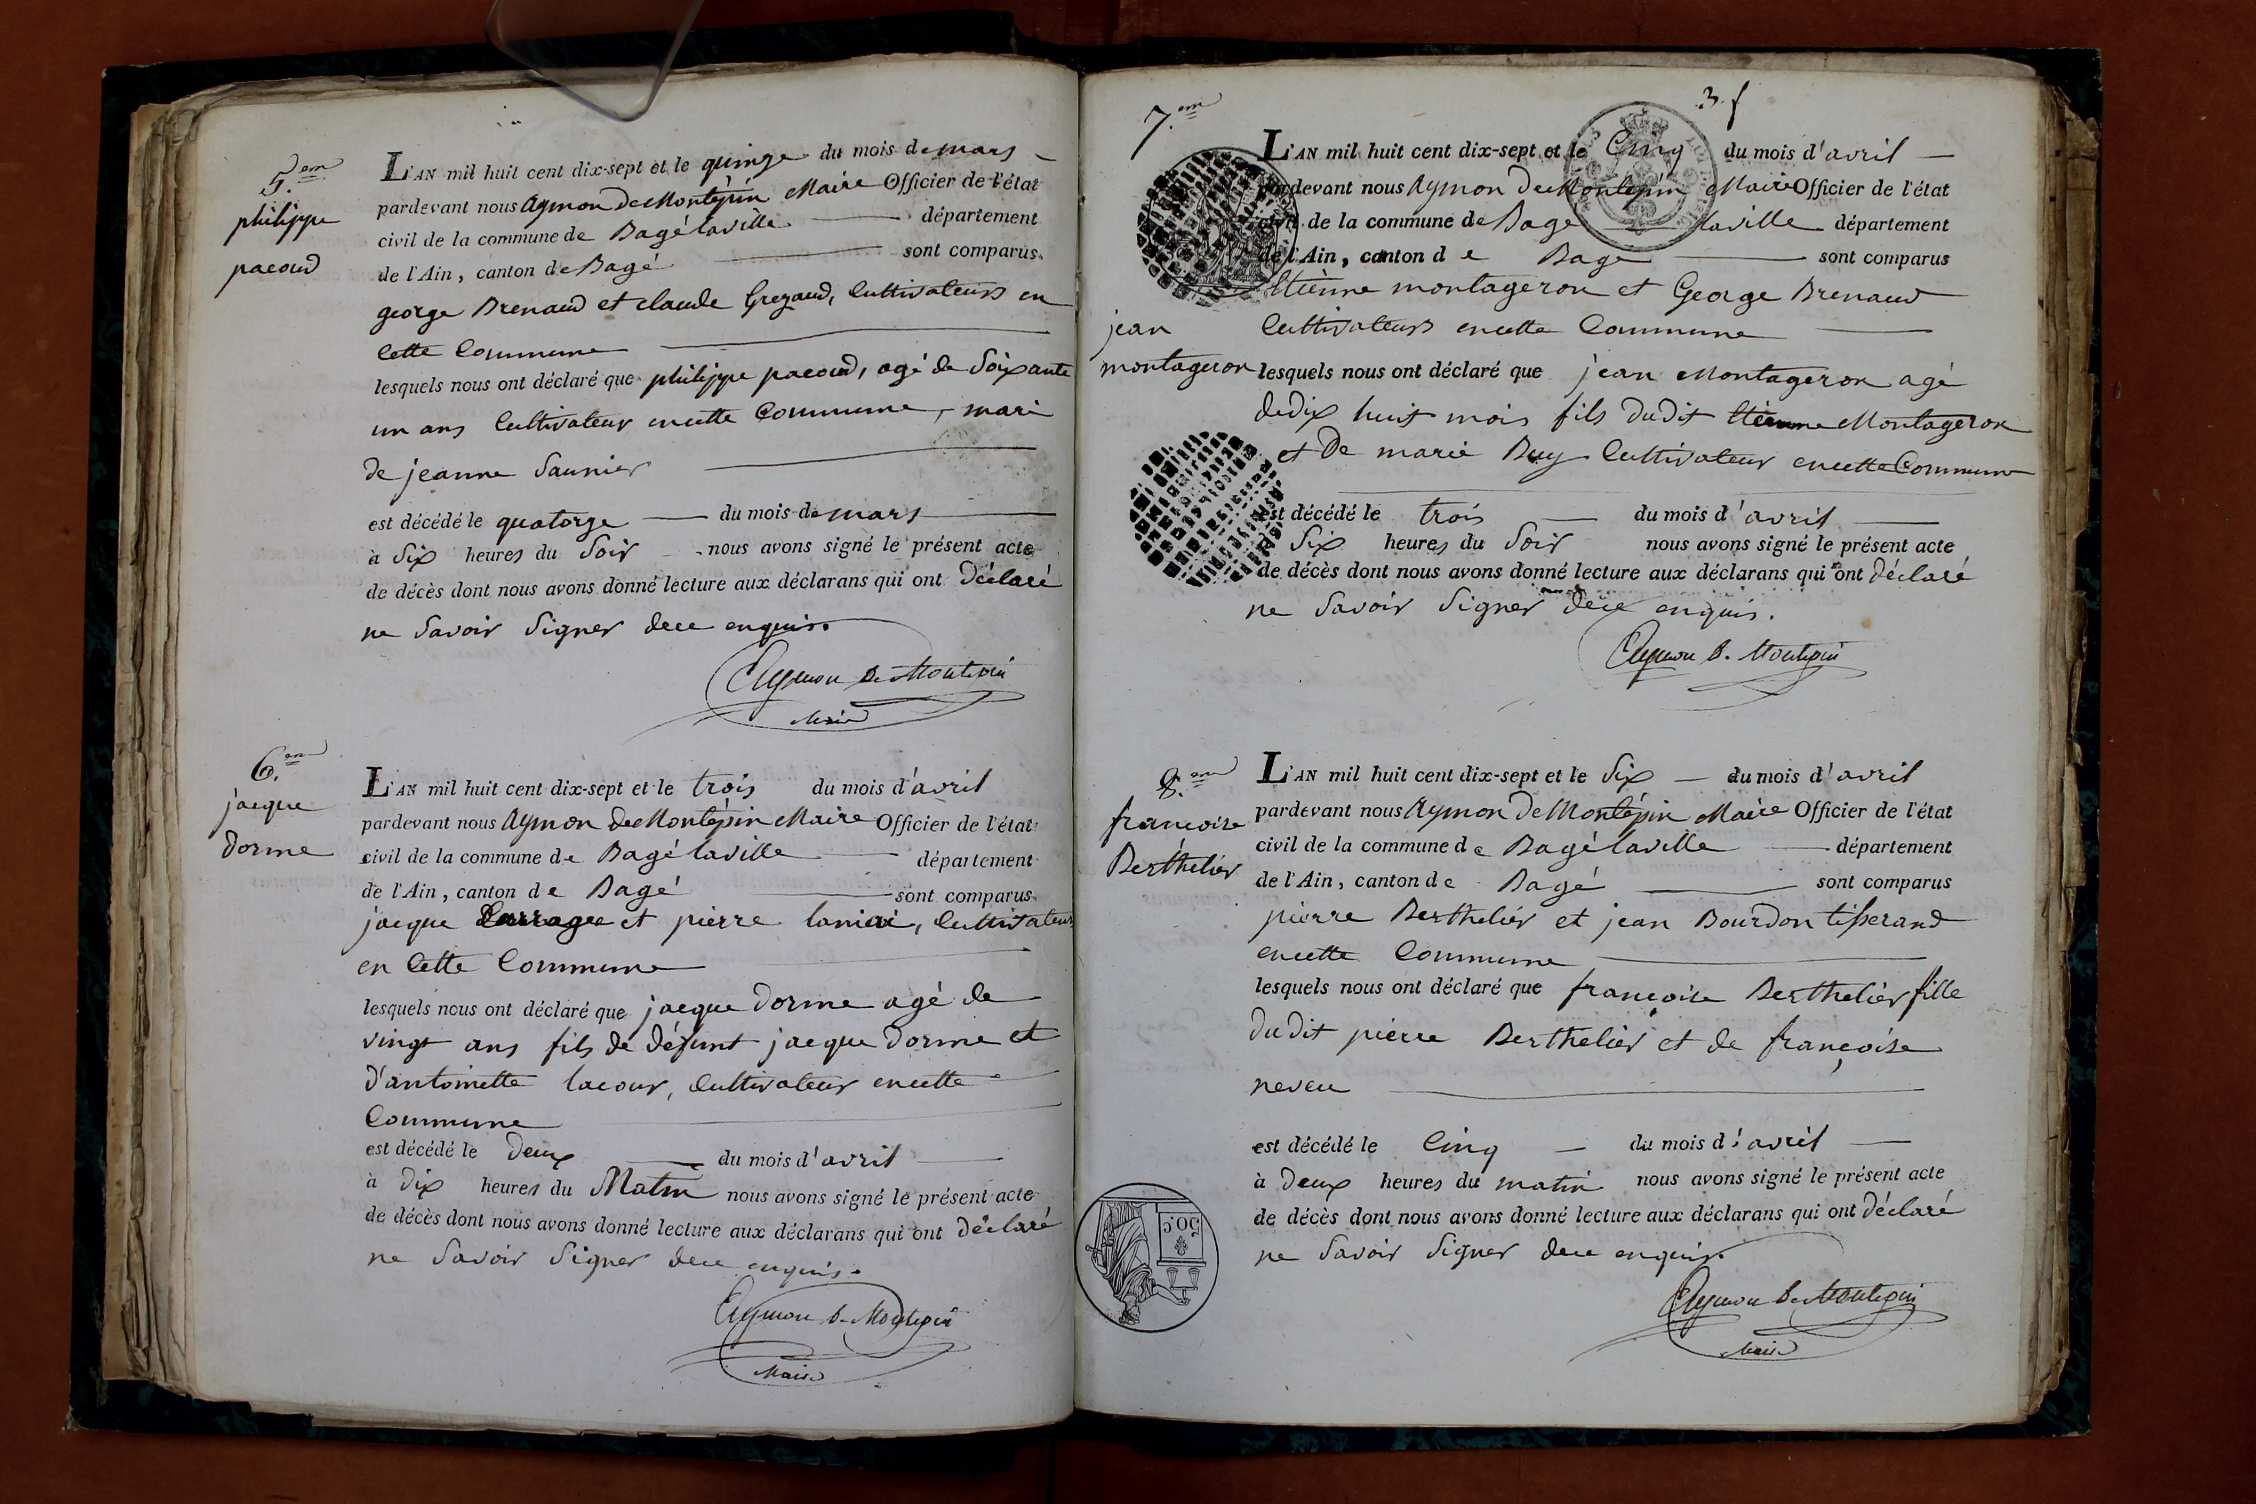 5.em
philippe
pacoud
L'AN mil huit cent dix-sept et le quinze du mois de mars
pardevant nous Aymon De Montépin Maire Officier de l'état
civil de la commune de Bagé laville département
de l'Ain, canton de Bagé sont comparus
george Brenaud et claude Gregaud, Cultivateurs en
Cette Commune
lesquels nous ont déclaré que philippe pacoud, agé de Soixante
un ans Cultivateur encette Commune, mari
de jeanne Saunier
est décédé le quatorze du mois de mars
à Six heures du Soir nous avons signé le présent acte
de décès dont nous avons donné lecture aux déclarans qui ont Déclaré
ne Savoir Signer dece enquis.
Aymon De Montepin
Maire
6.em
jacque
Dorme
L'AN mil huit cent dix-sept et le trois du mois d'avril
pardevant nous Aymon De Montépin Maire Officier de l'état
civil de la commune de Bagé laville département
de l'Ain, canton de Bagé sont comparus
jacque et pierre , Cultivateurs
en Cette Commune
lesquels nous ont déclaré que jacque Dorme agé de
vingt ans fils de défunt jacque Dorme et
D'antoinette lacour, Cultivateur encette
Commune
est décédé le Deux du mois d'avril
à Dix heures du Matin nous avons signé le présent acte
de décès dont nous avons donné lecture aux déclarans qui ont Déclaré
ne Savoir Signer dece enquis.
Aymon De Montepin
Maire
3. f
7.em
jean
montageron
L'AN mil huit cent dix-sept et le Cinq du mois d'avril
pardevant nous Aymon De Montépin Maire Officier de l'état
civil de la commune de Bage laville département
de l'Ain, canton de Bage sont comparus
Etienne montageron et George Brenaud
Cultivateurs encette Commune
lesquels nous ont déclaré que jean Montageron agé
dedix huit mois fils Dudit Etienne Montageron
et De marie Buy Cultivateur encette Commune
est décédé le trois du mois d'avril
à Six heures du Soir nous avons signé le présent acte
de décès dont nous avons donné lecture aux déclarans qui ont Déclaré
ne Savoir Signer dece enquis.
Aymon De Montepin
8.em
francoise
Berthelier
L'AN mil huit cent dix-sept et le Six du mois d'avril
pardevant nous Aymon De Montépin Maire Officier de l'état
civil de la commune de Bagé laville département
de l'Ain, canton de Bagé sont comparus
pierre Berthelier et jean Bourdon tisserand
encette Commune
lesquels nous ont déclaré que francoise Berthelier fille
Dudit pierre Berthelier et de françoise
neveu
est décédé le Cinq du mois d'avril
à Deux heures du matin nous avons signé le présent acte
de décès dont nous avons donné lecture aux déclarans qui ont Déclaré
ne Savoir Signer dece enquis.
50.c
Aymon De Montepin
Maire